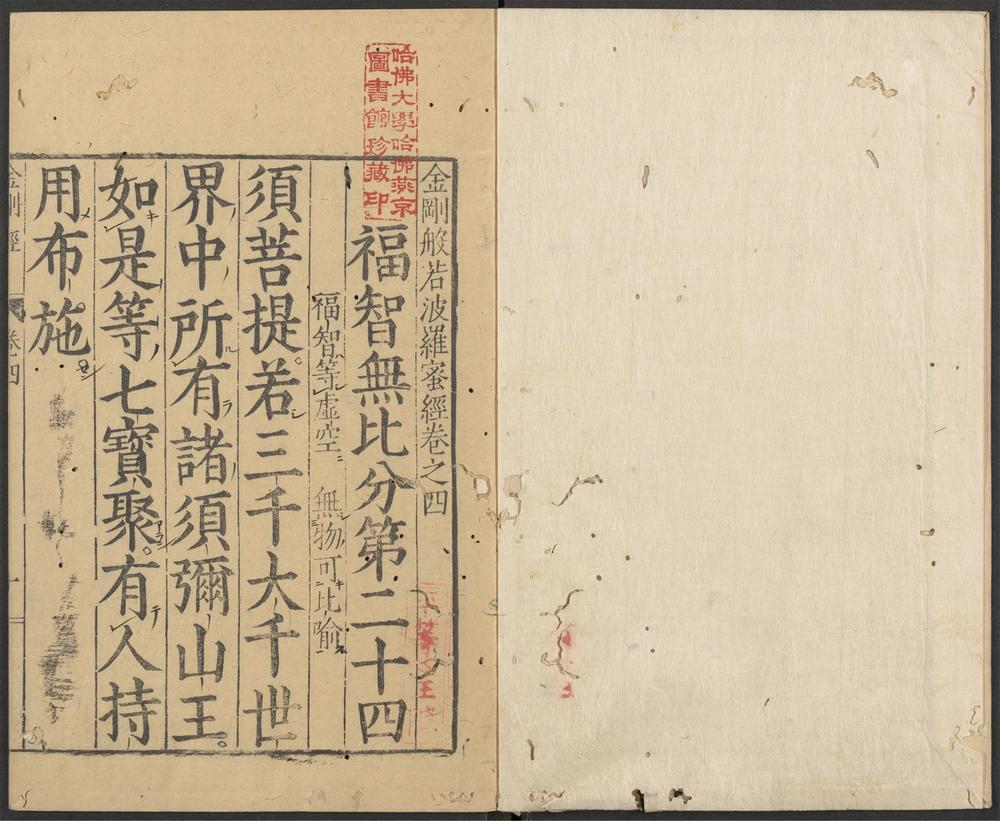 哈佛大學哈佛燕京
圖書館珍藏印
金剛般若波羅蜜經卷之四
福智無比分第二十四
福智等虛空 無物可比喻
須菩提若三千大千世
界中所有諸須彌山王。
如是等七寶聚。有人持
用布施。
金剛經 卷四